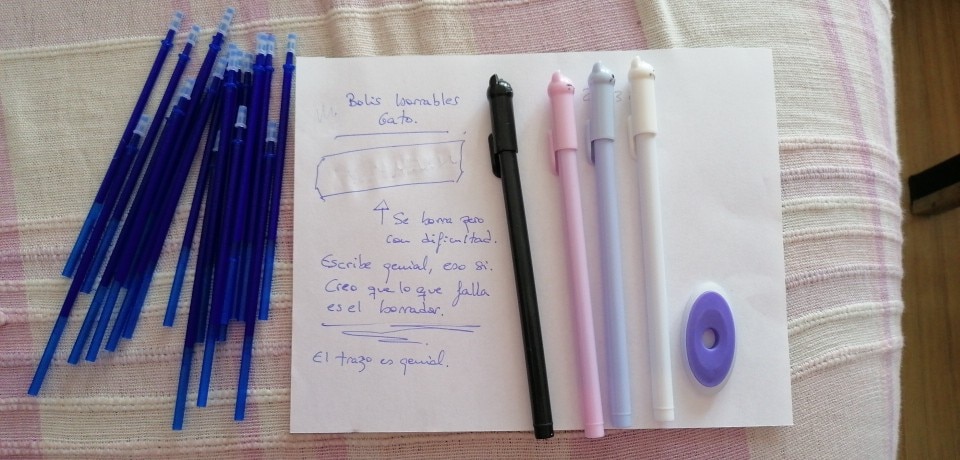 Bolis borrables
Gato.
Se borra pero
con dificultad.
Escribe genial, eso si.
Creo que lo que falla
es el borrador.
El trazo es genial.